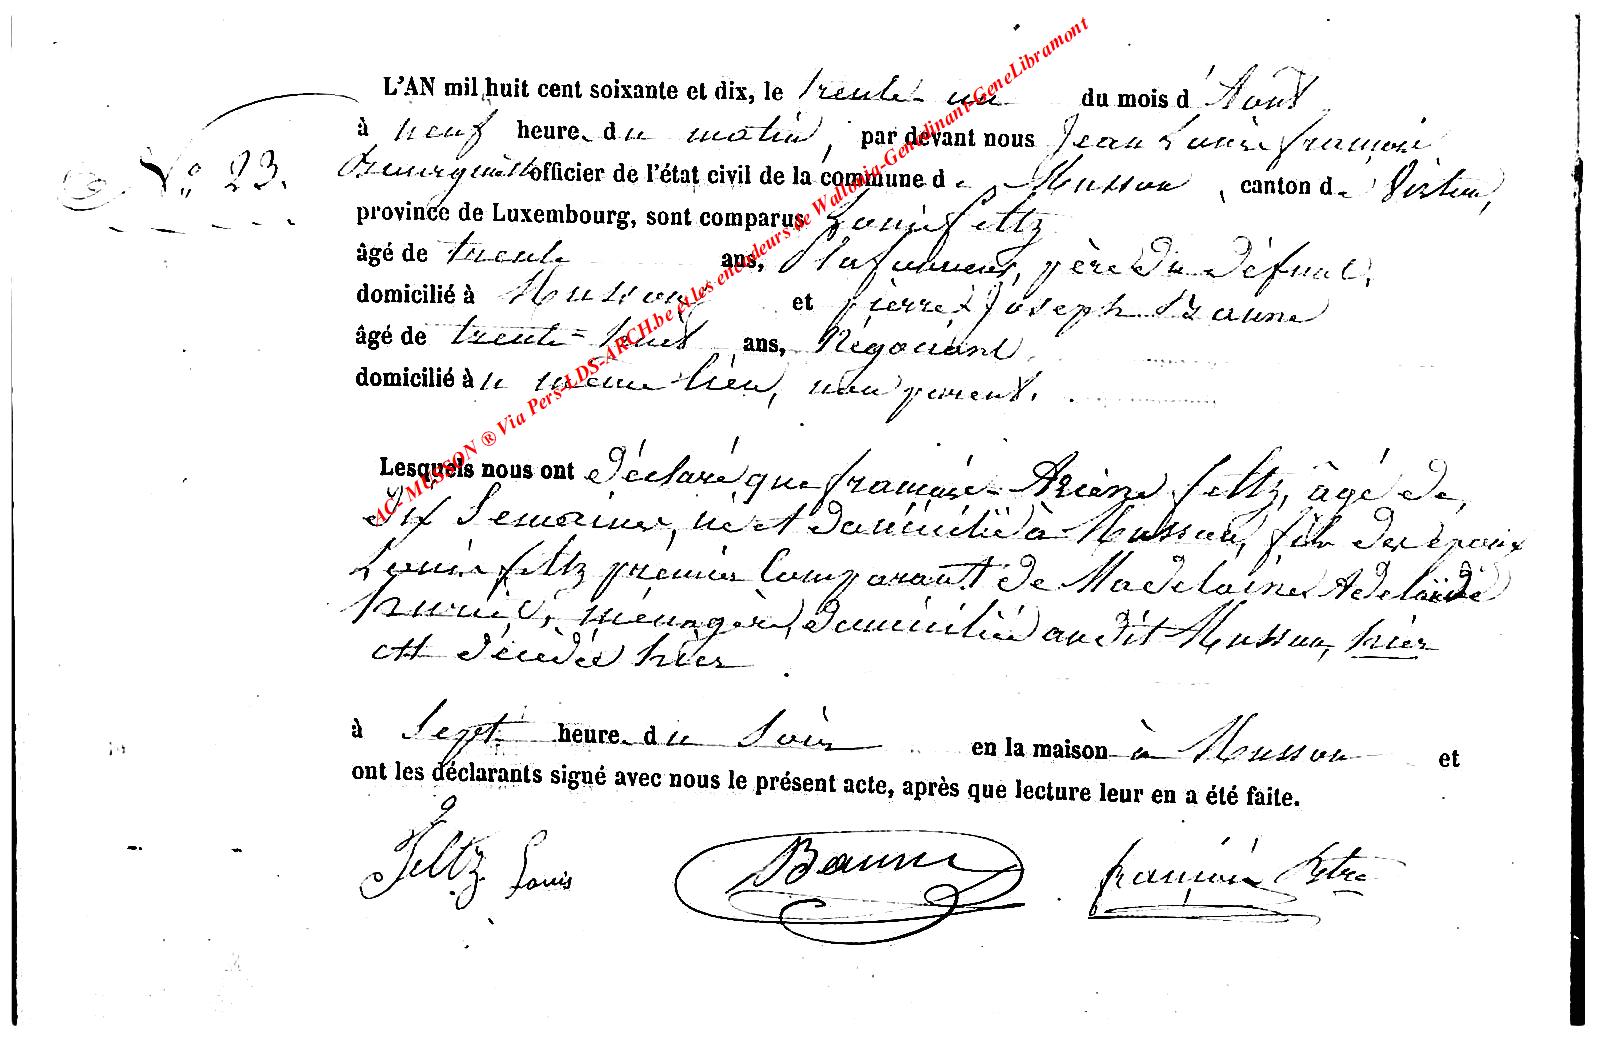 L'AN mil huit cent soixante et dix, le trente un du mois d'Août
à neuf heure du matin, par devant nous Jean Louis françois
officier de l'état civil de la commune de Musson, canton de Virton,
N° 23.
province de Luxembourg, sont comparus Louis feltz
âgé de trente ans, Plafonneur, père du défunt,
domicilié à Musson et pierre Joseph Baune
âgé de trente-huit ans, Négociant
domicilié au même lieu, non parent.
Lesquels nous ont déclaré que françois feltz, âgé de
six Semaines, né et domicilié à Musson, fils des époux
Louis feltz premier Comparant de Madelaine Adelaïde
ménagère, domiciliée au dit Musson, hier
est décédé hier
à Sept heure du Soir en la maison à Musson et
ont les déclarants signé avec nous le présent acte, après que lecture leur en a été faite.
Feltz Louis Baune françois
AC-MUSSON ® Via Pers-LDS-ARCH.be et les encodeurs de Wallonia-Genedinant-GeneLibramont